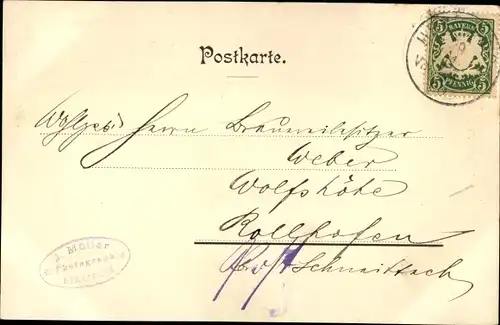 Postkarte.
5 BAYERN 5
5 PFENNIG 5
Wohlgeb. Herrn Brauereibesitzer
Weber
Wolfshöhe
Rollhofen
Post Schnaittach
J. Müller
Photograph